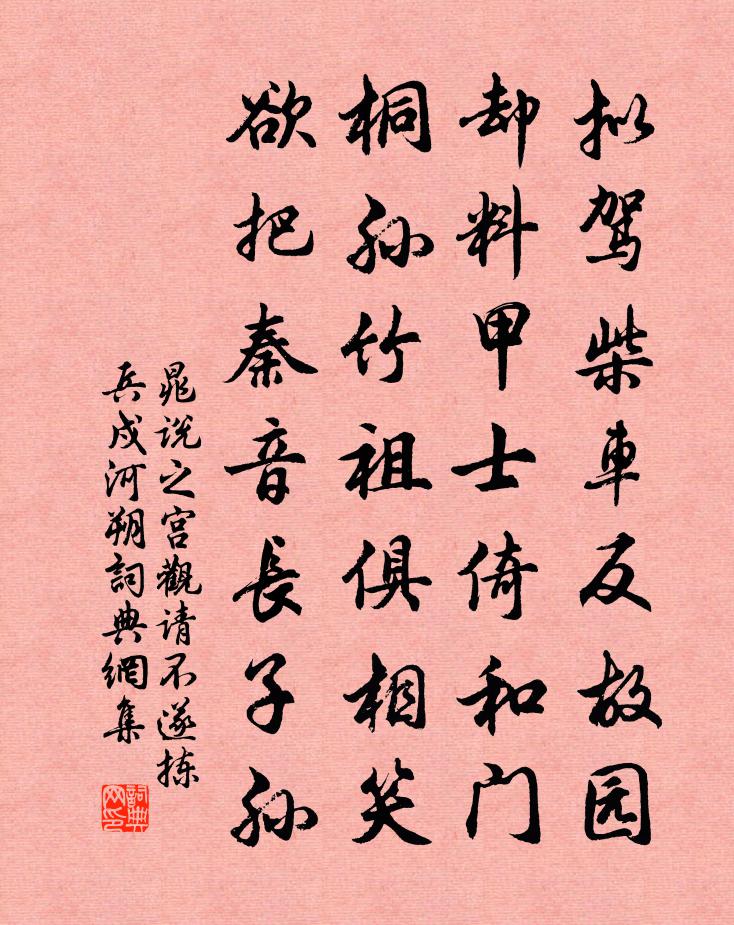 拟驾柴車反故园
却料甲士倚和门
桐孙竹祖俱相笑
欲把秦音長子孙
晁说之宫觀请不遂拣
兵戍河朔詞典網集
詞典网印